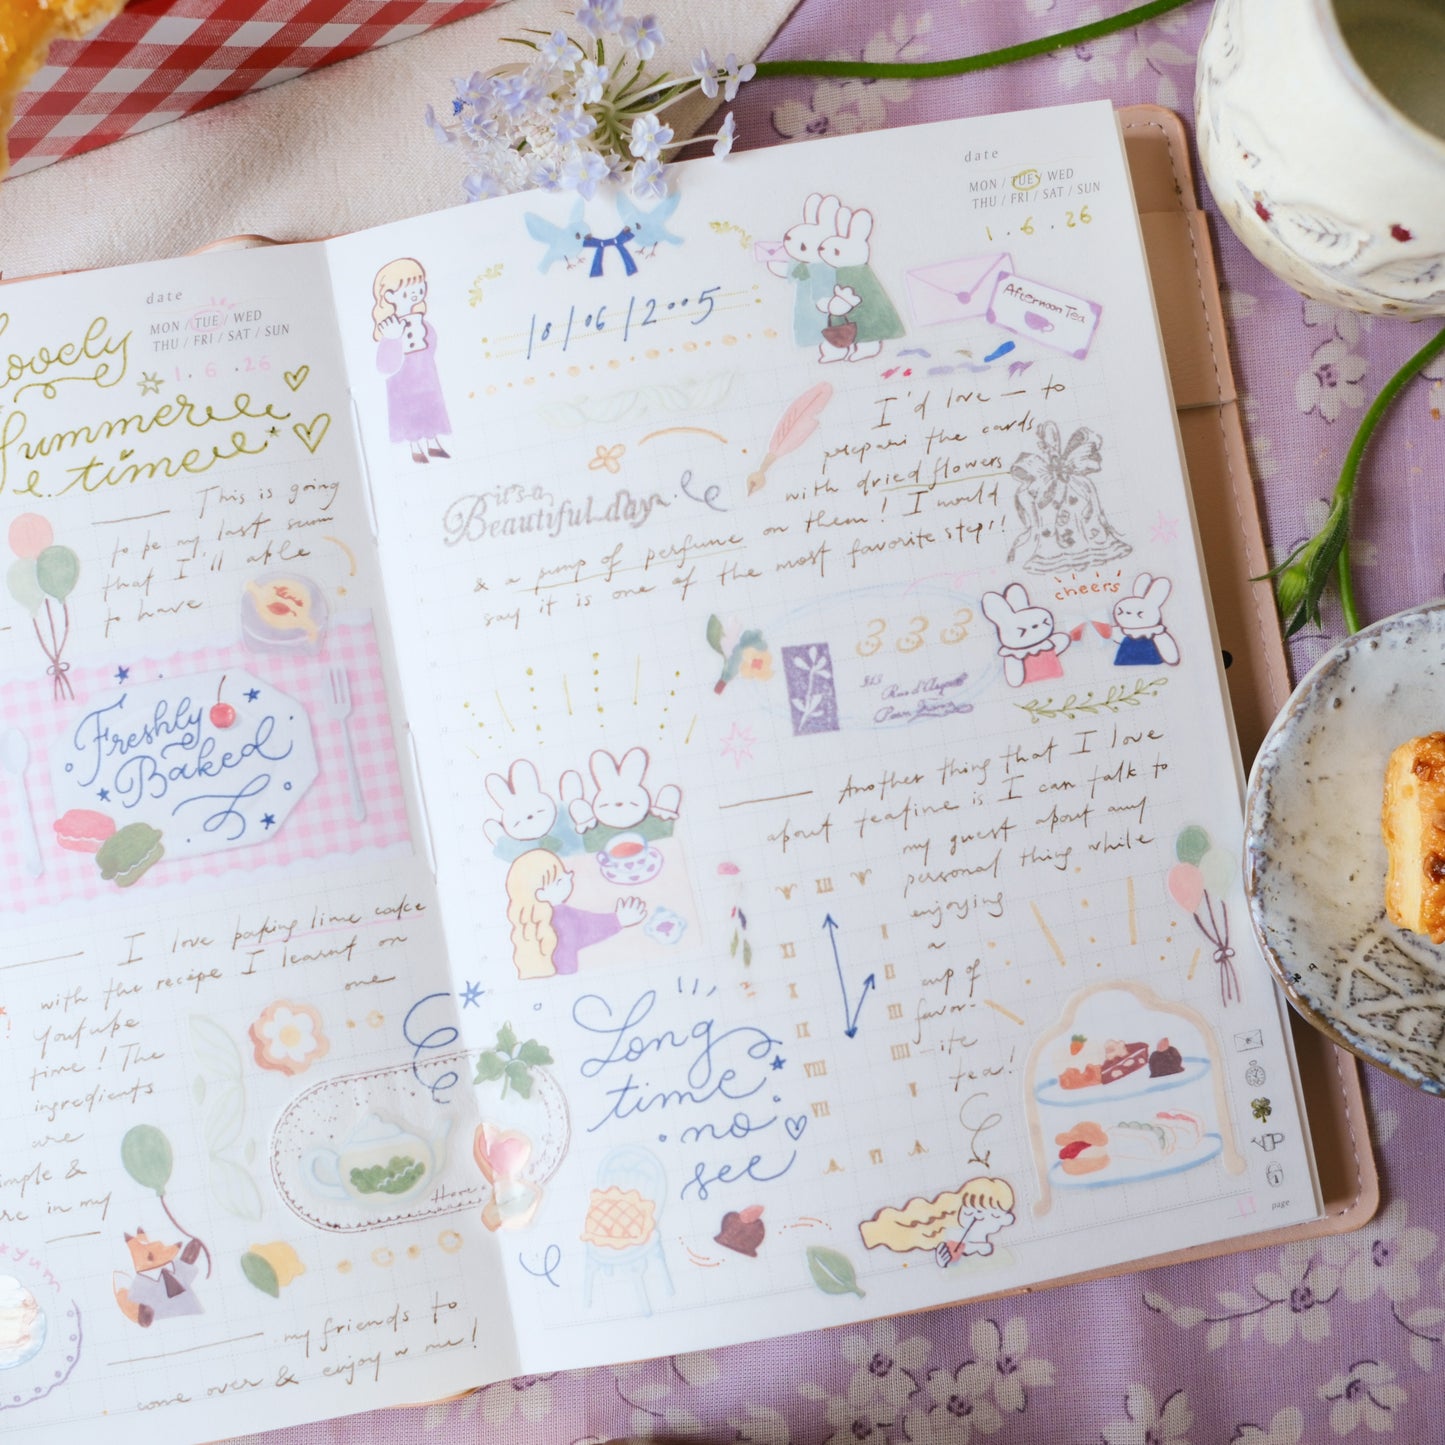 date
MON / TUE / WED
THU / FRI / SAT / SUN
1 . 6 . 26
Lovely
Summer
time
This is going
to be my last summ
that I'll able
to have
Freshly
Baked
I love baking lime cake
with the recipe I learnt on
Youtube one
time! The
ingredients
are
simple &
in my
yum
Here
my friends to
come over & enjoy w me!
date
MON / TUE / WED
THU / FRI / SAT / SUN
1 . 6 . 26
10/06/2005
Afternoon Tea
it's a
Beautiful day
I'd love — to
prepare the cards
with dried flowers
& a pump of perfume on them! I would
say it is one of the most favorite steps!
cheers
3 3 3
Another thing that I love
about teatime is I can talk to
my guest about any
personal thing while
enjoying
a
cup of
favor-
-ite
tea!
XII
XI
I
X
II
IX
III
VIII
IIII
VII
V
VI
Long
time
no
see
page